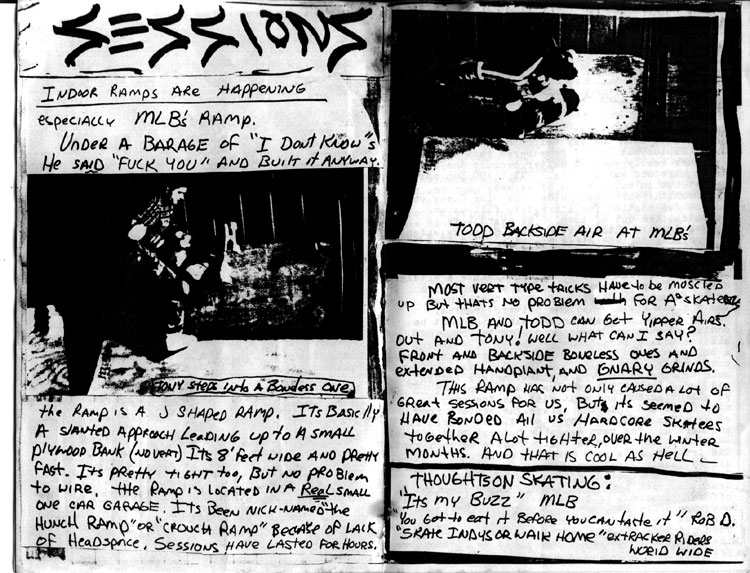 SESSIONS
INDOOR RAMPS ARE HAPPENING
especially MLB's RAMP.
UNDER A BARAGE OF "I DONT KNOW"s
He SAID "FUCK YOU" AND BUILT it ANYWAY.
TONY STEPS INTO A BONELESS ONE
the RAMP IS A J SHAPED RAMP. ITS BASICllY
A SLANTED APPROACH LEADING UP TO A SMALL
PLYWOOD BANK (NO VERT) ITS 8' FEET WIDE AND PRETTY
FAST. ITS PRETTY TIGHT TOO, BUT NO PROBLEM
TO WIRE. tHE RAMP IS LOCATED IN A REAL SMALL
ONE CAR GARAGE. ITS BEEN NICK-NAMED "the
HUNCH RAMP" OR "CROUCH RAMP" BECAUSE OF LACK
OF HEADSPACE. SESSIONS HAVE LASTED FOR HOURS.
TODD BACKSIDE AIR AT MLB's
MOST VERT TYPE TRICKS HAVE to BE MUSCLED
UP BUT THATS NO PROBLEM FOR A° SKATE
MLB AND TODD CAN GET YIPPER AIRS.
OUT AND TONY, WELL WHAT CAN I SAY?
FRONT AND BACKSIDE BONELESS ONES AND
EXTENDED HANDPLANT, AND GNARY GRINDS.
THIS RAMP HAS NOT ONLY CAUSED A LOT OF
GREAT SESSIONS FOR US, BUT ITS SEEMED TO
HAVE BONDED All US HARDCORE SKATERS
TOGETHER A LOT TIGHTER, OVER THE WINTER
MONTHS. AND THAT IS COOL AS HELL
THOUGHTS ON SKATING:
"ITS MY BUZZ" MLB
"YOU GOT TO EAT IT BEFORE YOU CAN TASTE IT" ROB D.
"SKATE INDYS OR WALK HOME" EXTRACKER RIDERS
WORLD WIDE